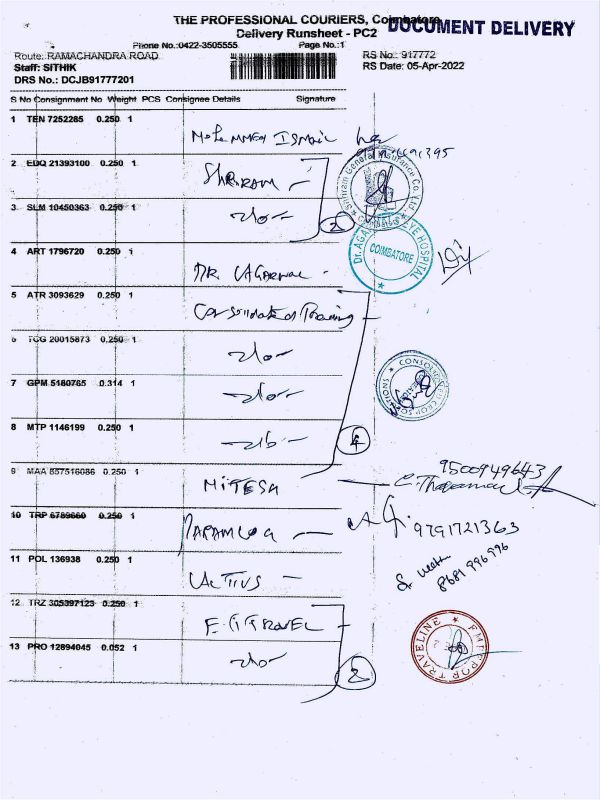 THE PROFESSIONAL COURIERS, Coimbatore
DOCUMENT DELIVERY
Delivery Runsheet - PC2
Phone No.:0422-3505555 Page No.:1
Route: RAMACHANDRA ROAD RS No.: 917772
Staff: SITHIK RS Date: 05-Apr-2022
DRS No.: DCJB91777201
S No Consignment No Weight PCS Consignee Details Signature
1 TEN 7252285 0.250 1
Mohammed Ismail
2 EDQ 21393100 0.250 1
Shriram
Shriram General Insurance Co. Ltd
3 SLM 10450363 0.250 1
2
4 ART 1796720 0.250 1
DR. AGARWAL
Dr. AGARWAL EYE HOSPITAL
COIMBATORE
5 ATR 3093629 0.250 1
Consolidated Training
6 TCG 20015873 0.250 1
7 GPM 5180765 0.314 1
8 MTP 1146199 0.250 1
4
9 MAA 857516086 0.250 1
MITESH
9500949643
10 TRP 6789660 0.250 1
9791721363
11 POL 136938 0.250 1
8681996996
12 TRZ 305397123 0.250 1
E TRAVEL
EMPEROR TRAVELINE
13 PRO 12894045 0.052 1
2